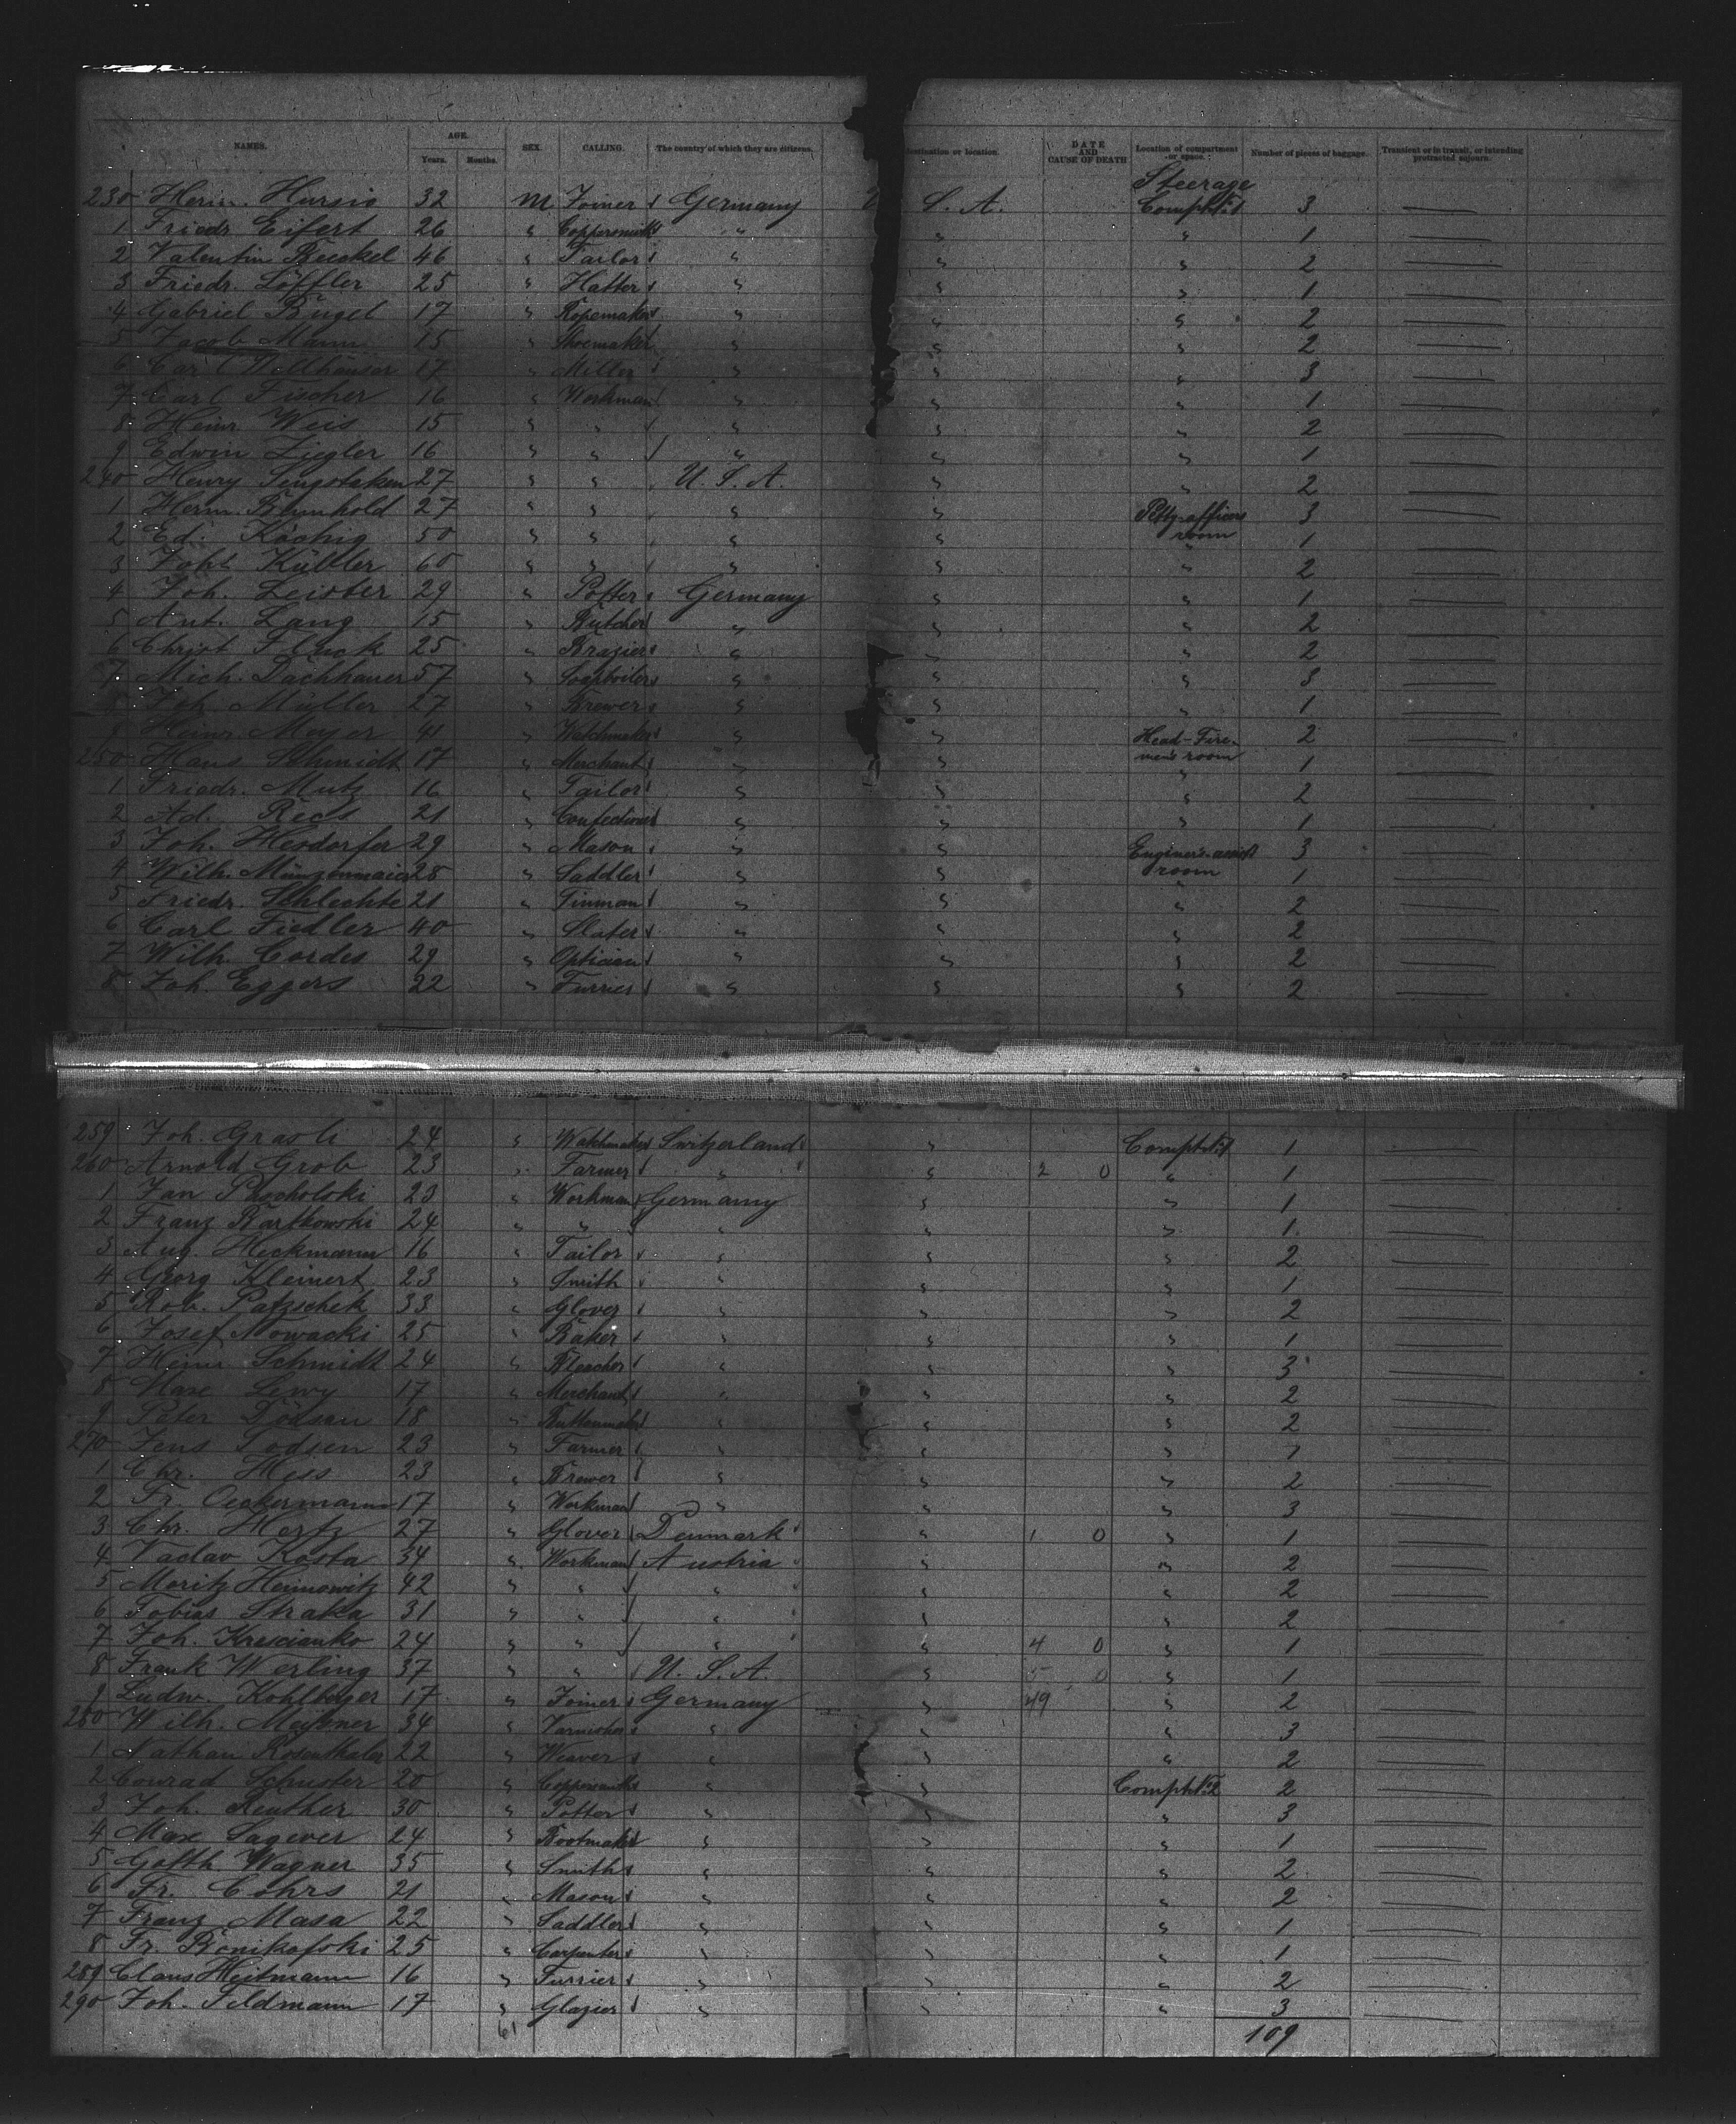 NAMES. AGE. Years. Months. SEX. CALLING. The country of which they are citizens. destination or location. DATE AND CAUSE OF DEATH Location of compartment or space. Number of pieces of baggage. Transient or in transit, or intending protracted sojourn.
Steerage
230 Herm. Hursio 32 M Joiner Germany S. A. Compt 3
1 Friedr. Eifert 26 " Coppersmith " " " 1
2 Valentin Beeckel 46 " Tailor " " " 2
3 Friedr. Löffler 25 " Hatter " " " 1
4 Gabriel Bügel 17 " Ropemaker " " " 2
5 Jacob Mann 15 " Shoemaker " " " 2
6 Carl Wellhäuser 17 " Miller " " " 3
7 Carl Fischer 16 " Workman " " " 1
8 Heinr. Weis 15 " " " " " 2
9 Edwin Ziegler 16 " " " " " 1
240 Henry Sengstaken 27 " " U. S. A. " " 2
1 Herm. Brunhold 27 " " " " Petty-officers room 3
2 Ed. Köchig 50 " " " " " 1
3 Joh. Kübler 60 " " " " " 2
4 Joh. Leister 29 " Potter Germany " " 1
5 Ant. Lang 15 " Butcher " " " 2
6 Christ Fluck 25 " Brazier " " " 2
7 Mich. Dachhauer 57 " Soapboiler " " " 3
8 Joh. Müller 27 " Brewer " " " 1
9 Heinr. Meyer 41 " Watchmaker " " Head-Firemen's room 2
250 Hans Schmidt 17 " Merchant " " " 1
1 Friedr. Mutz 16 " Tailor " " " 2
2 Ad. Rees 21 " Confectioner " " " 1
3 Joh. Hesdorfer 29 " Mason " " Engineer's-assist room 3
4 Wilh. Münzenmaier 28 " Saddler " " " 1
5 Friedr. Schlechte 21 " Tinman " " " 2
6 Carl Fiedler 40 " Slater " " " 2
7 Wilh. Cordes 29 " Optician " " " 2
8 Joh. Eggers 22 " Furrier " " " 2
259 Joh. Grasli 24 " Watchmaker Switzerland " Compt 1
260 Arnold Grob 23 " Farmer " " 2 0 " 1
1 Jan 23 " Workman Germany " " 1
2 Franz Bartkowski 24 " " " " " 1
3 Aug. Heckmann 16 " Tailor " " " 2
4 Georg Kleinert 23 " Smith " " " 1
5 Rob. Patzschek 33 " Glover " " " 2
6 Josef Nowacki 25 " Baker " " " 1
7 Heinr. Schmidt 24 " Bleacher " " " 3
8 Max Lewy 17 " Merchant " " " 2
9 Peter Tödsen 18 " Buttonmaker " " " 2
270 Jens Todsen 23 " Farmer " " " 1
1 Chr. Hess 23 " Brewer " " " 2
2 Fr. Oeckermann 17 " Workman " " " 3
3 Chr. Hertz 27 " Glover Denmark " 1 0 " 1
4 Vaclav Kosta 34 " Workman Austria " " 2
5 Moritz Heimowitz 42 " " " " " 2
6 Tobias Straka 31 " " " " " 2
7 Joh. Krescianko 24 " " " " 4 0 " 1
8 Frank Werling 37 " " U. S. A. " 5 0 " 1
9 Ludw. Kohlberger 17 " Joiner Germany " 49 " 2
280 Wilh. Meissner 34 " Varnisher " " " 3
1 Nathan Rosenthaler 22 " Weaver " " " 2
2 Conrad Schuster 20 " Coppersmith " " Compt 2 2
3 Joh. Reuther 30 " Potter " " " 3
4 Max Sagewer 24 " Bootmaker " " " 1
5 Gotth. Wagner 35 " Smith " " " 2
6 Fr. Cohrs 21 " Mason " " " 2
7 Franz Masa 22 " Saddler " " " 1
8 Fr. Bonikofski 25 " Carpenter " " " 1
289 Claus Heitmann 16 " Furrier " " " 2
290 Joh. Feldmann 17 " Glazier " " " 3
61 109